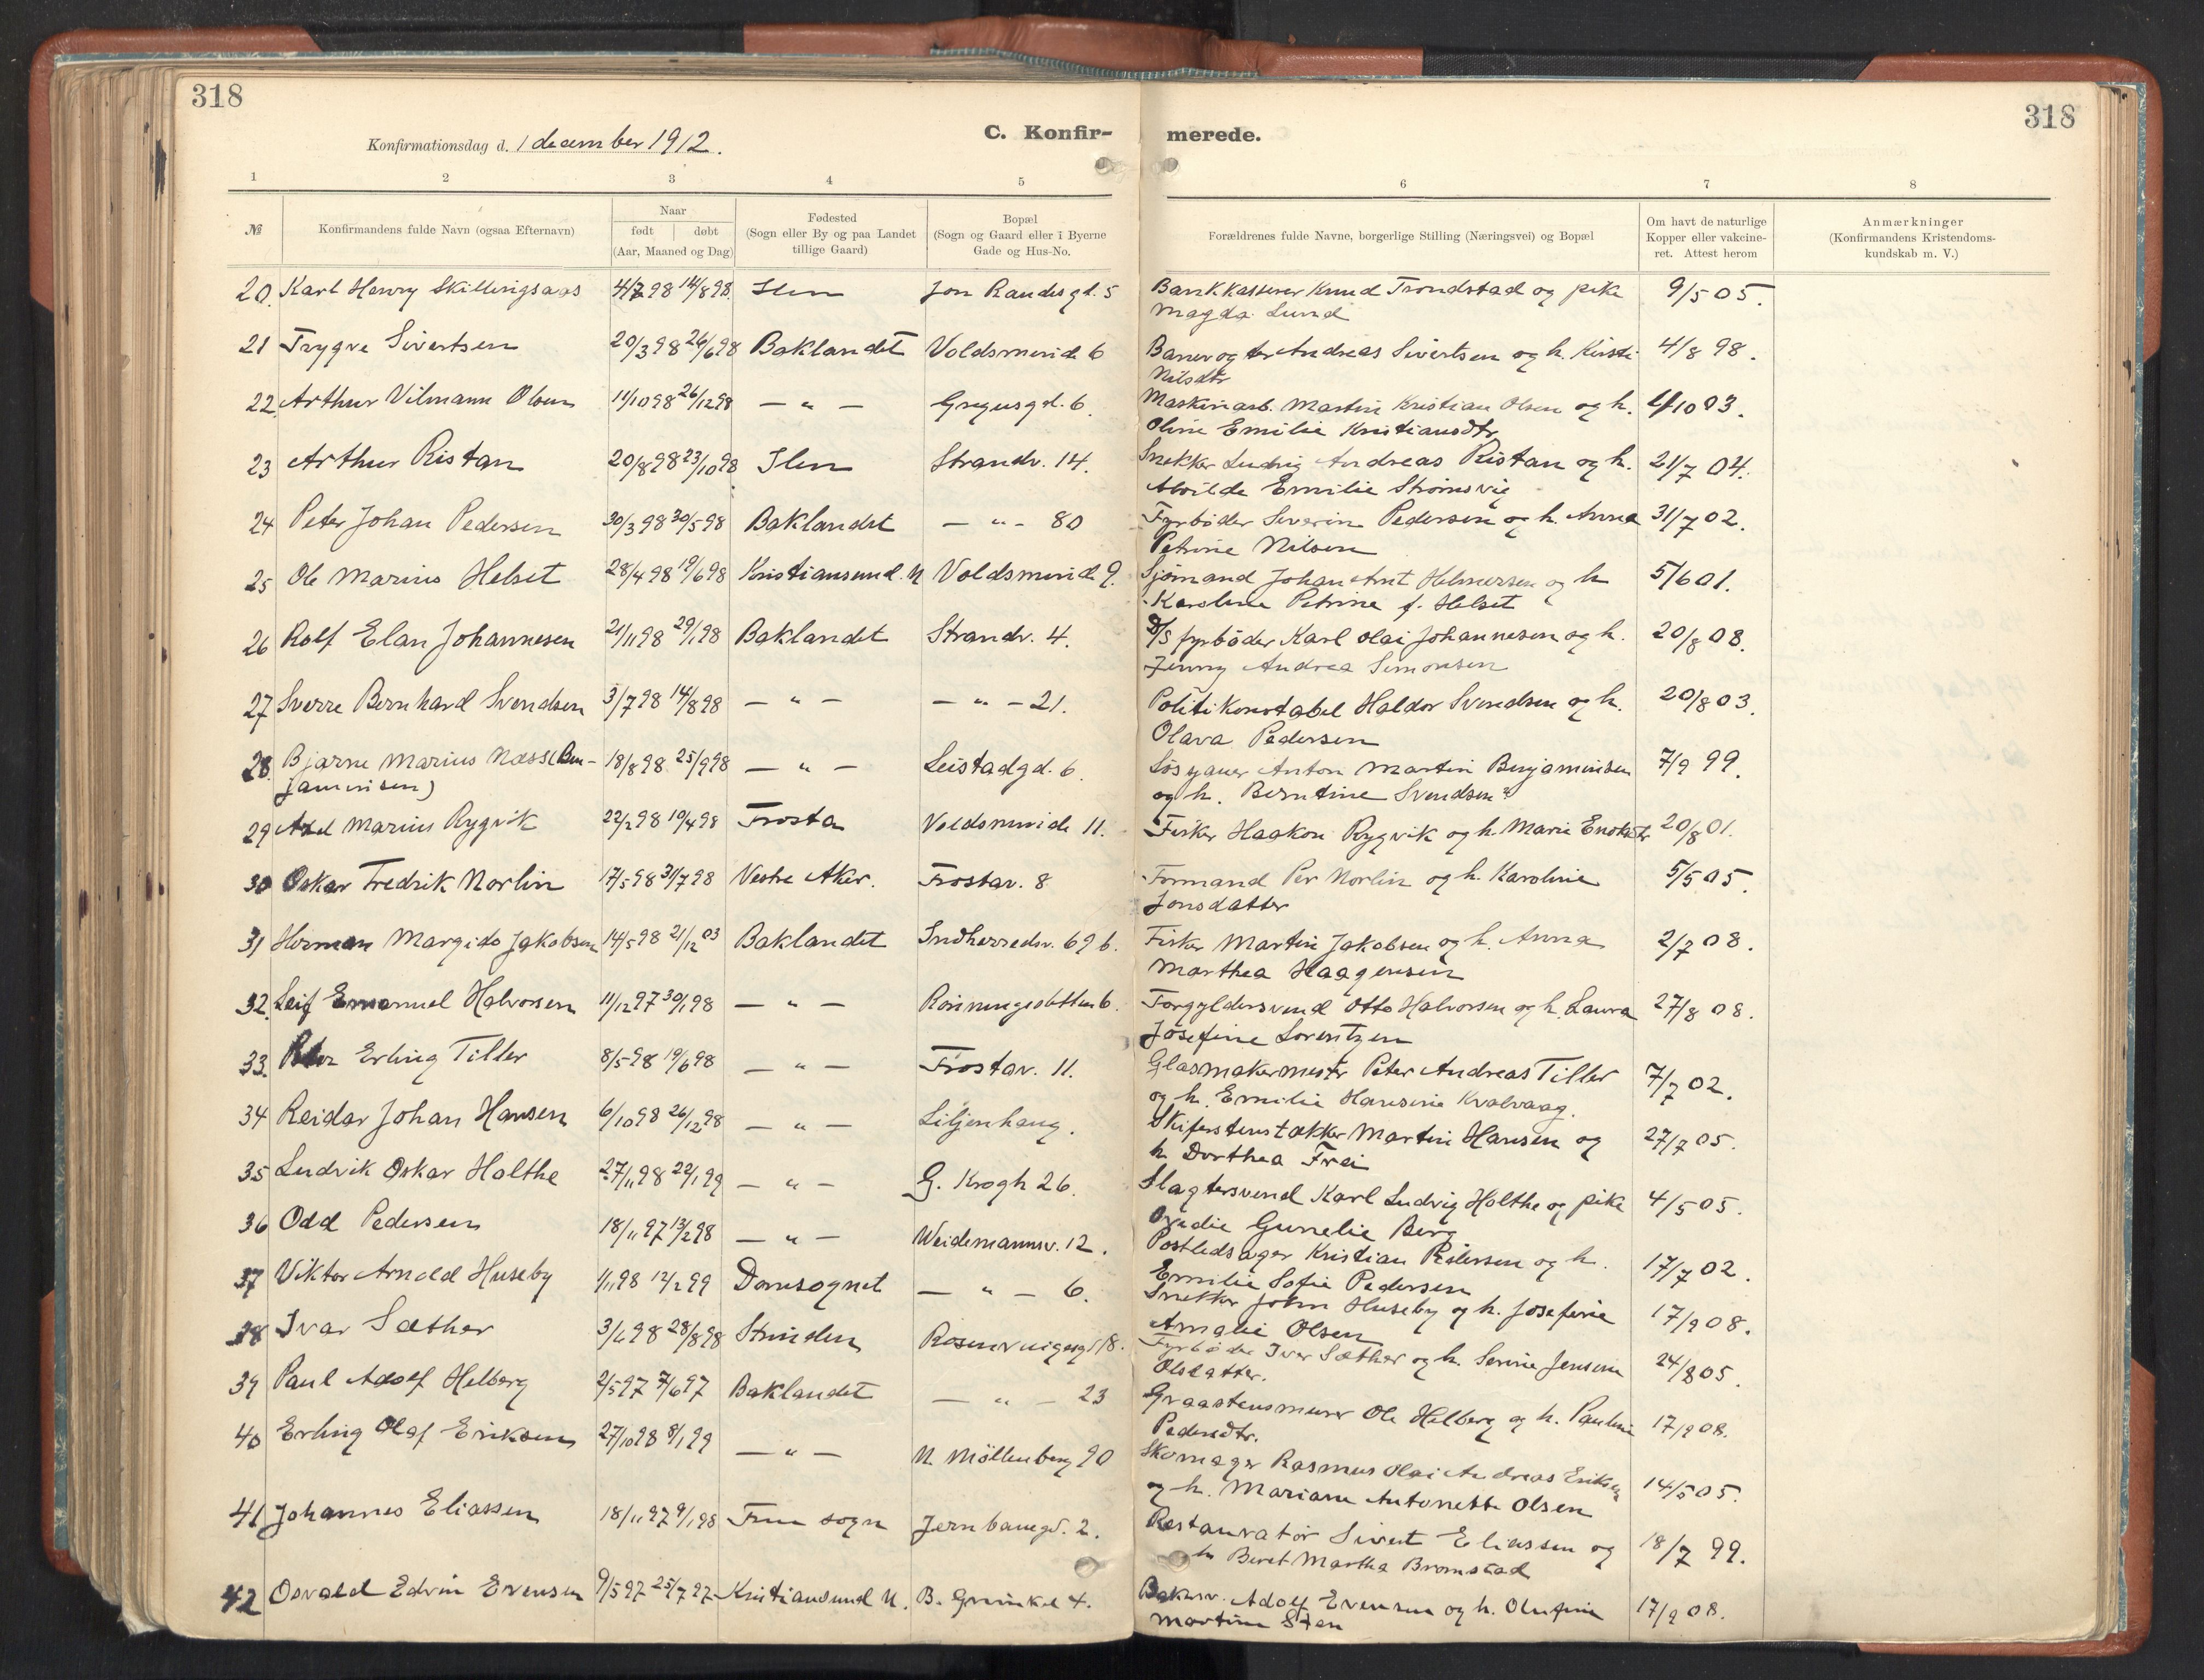 318
318
Konfirmationsdag d. 1 december 1912.
C. Konfir-
merede.
1 2 3 4 5 6 7 8
№
Konfirmandens fulde Navn (ogsaa Efternavn)
Naar
født døbt
(Aar, Maaned og Dag)
Fødested
(Sogn eller By og paa Landet
tillige Gaard)
Bopæl
(Sogn og Gaard eller i Byerne
Gade og Hus-No.
Forældrenes fulde Navne, borgerlige Stilling (Næringsvei) og Bopæl
Om havt de naturlige
Kopper eller vakcine-
ret. Attest herom
Anmærkninger
(Konfirmandens Kristendoms-
kundskab m. V.)
20. Karl Henry Skillingsaas 4/7 98 14/8 98. Ilen Jon Raudesgd. 5 Bankkasserer Knud Trondstad og pike 9/5 05.
Magda Lund
21 Trygve Sivertsen 20/3 98 26/6 98 Baklandet Voldsminde 6 Banevogter Andreas Sivertsen og h. Kirsti 4/8 98.
Nilsdtr
22. Arthur Vilmann Olsen 11/10 98 26/12 98 — " — Gregusgd. 6. Maskinarb. Martin Kristian Olsen og h. 4/10 03.
Oline Emilie Kristiansdtr
23 Arthur Ristan 20/8 98 23/10 98 Ilen Strandv. 14. Snekker Ludvig Andreas Ristan og h. 21/7 04.
Alvilde Emilie Strømsvig
24 Peter Johan Pedersen 30/3 98 30/5 98 Baklandet — " — 80 Fyrbøder Severin Pedersen og h. Anna 31/7 02.
Petrine Nilsen
25 Ole Marius Helset 28/4 98 19/6 98 Kristiansund N Voldsminde 9. Sjømand Johan Arnt Helmersen og h 5/6 01.
Karoline Petrine f. Helset
26 Rolf Elan Johannesen 21/11 98 29/1 98 Baklandet Strandv. 4. D/S fyrbøder Karl Olai Johannesen og h. 20/8 08.
Jenny Andrea Simonsen
27 Sverre Bernhard Svendsen 3/7 98 14/8 98 — " — — " — 21. Politikonstabel Haldor Svendsen og h. 20/8 03.
Olava Pedersen
28. Bjarne Marius Næss (Ben- 18/8 98 25/9 98 — " — Leistadgd. 6. Løsgaaer Anton Martin Benjaminsen 7/9 99.
jaminsen) og h. Berntine Svendsen
29 Axel Marius Rygvik 22/2 98 10/4 98 Frosta Voldsminde 11. Fisker Haakon Rygvik og h. Marie Enoksdtr 20/8 01.
30 Oskar Fredrik Norlin 17/5 98 31/7 98 Vestre Aker. Frostav. 8 Formand Per Norlin og h. Karoline 5/5 05.
Jonsdatter
31 Herman Margido Jakobsen 14/5 98 21/12 03 Baklandet Indherredsv. 69 b. Fisker Martin Jakobsen og h. Anna 2/7 08.
Marthea Haagensen
32. Leif Emanuel Halvorsen 11/12 97 30/1 98 — " — Rønningsletten 6. Forgyldersvend Otto Halvorsen og h. Laura 27/8 08.
Josefine Lorentzen
33. Peter Erling Tiller 8/5 98 19/6 98 — " — Frostav. 11. Glasmakermestr Peter Andreas Tiller 7/7 02.
og h. Emilie Hansine Kvalvaag.
34 Reidar Johan Hansen 6/10 98 26/12 98 — " — Liljenhaug. Skiferstenstækker Martin Hansen og 27/7 05.
h. Dorthea Frei
35 Ludvik Oskar Holthe 27/11 98 22/1 99 — " — G. Krogh 26. Slagtersvend Karl Ludvig Holthe og pike 4/5 05.
Gunelie Berg
36 Odd Pedersen 18/11 97 13/2 98 — " — Weidemannsv. 12. Postledsager Kristian Pedersen og h. 17/7 02.
Emilie Sofie Pedersen
37 Viktor Arnold Huseby 1/11 98 12/2 99 Domsognet — " — 6. Snekker John Huseby og h. Josefine 17/9 08.
Amalie Olsen
38 Ivar Sæther 3/6 98 28/8 98 Strinden Rosenborgsgd 18. Fyrbøder Iver Sæther og h. Serine Jensine 24/8 05.
Olsdatter.
39 Paul Adolf Helberg 2/5 97 7/6 97 Baklandet — " — 23 Graastensmurer Ole Helberg og h. Pauline 17/9 08.
Pedersdtr.
40 Erling Olaf Eriksen 27/10 98 8/1 99 — " — N. Møllenberg 90 Skomager Rasmus Olai Andreas Eriksen 14/5 05.
og h. Mariane Antonette Olsen
41 Johannes Eliassen 18/11 97 9/1 98 Frue sogn Jernbanegd. 2. Restauratør Sivert Eliassen og 18/7 99.
h. Beret Martha Bromstad
42 Osvald Edvin Evensen 9/5 97 25/7 97 Kristiansund N. B. Grinikel 4. Bakersv. Adolf Evensen og h. Olufine 17/9 08.
Martine Sten